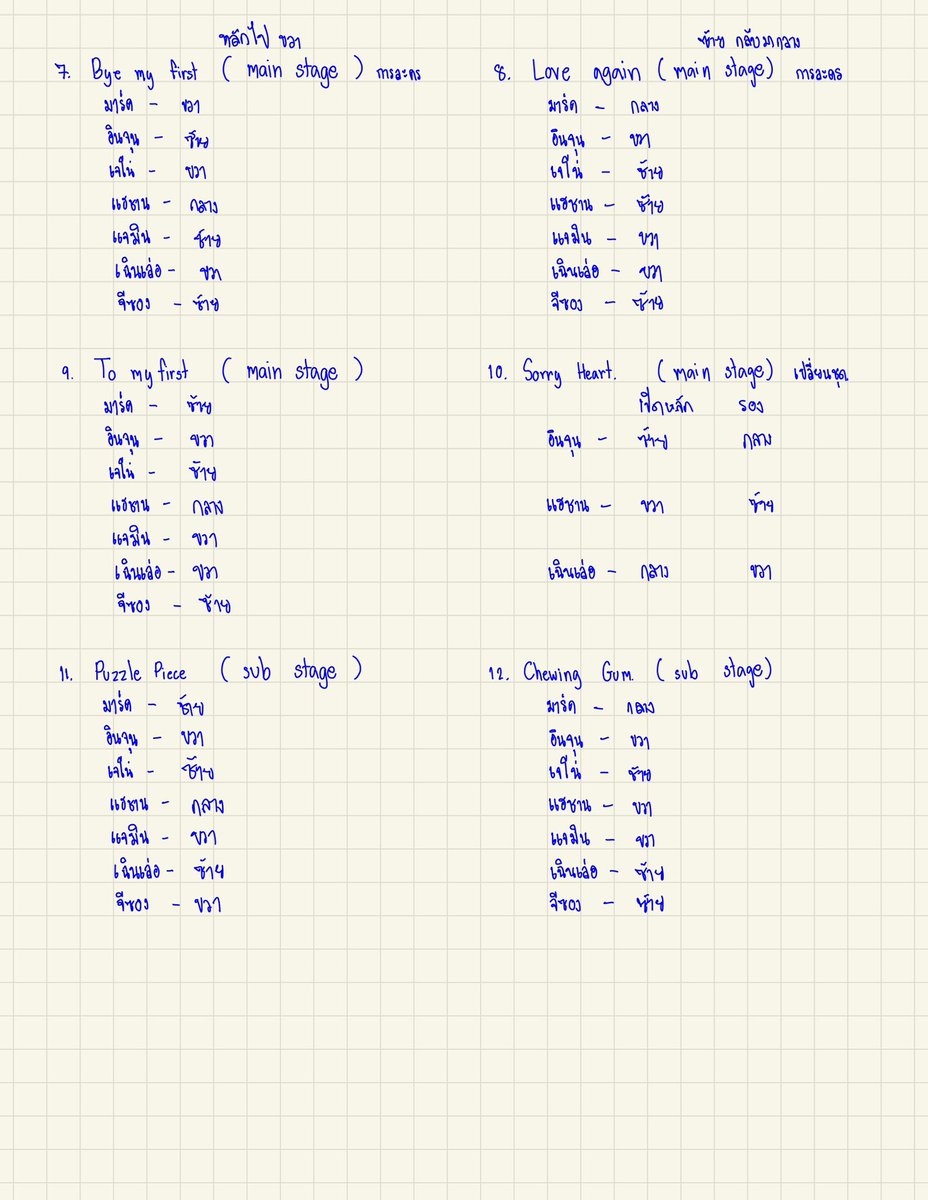 หลักไป ขวา
7. Bye my first ( main stage ) การละคร
มาร์ค - ขวา
อินจุน - ซ้าย
เจโน่ - ขวา
แฮชาน - กลาง
แจมิน - ซ้าย
เฉินเล่อ - ขวา
จีซอง - ซ้าย
ซ้าย กลับมากลาง
8. Love again ( main stage ) การละคร
มาร์ค - กลาง
อินจุน - ขวา
เจโน่ - ซ้าย
แฮชาน - ซ้าย
แจมิน - ขวา
เฉินเล่อ - ขวา
จีซอง - ซ้าย
9. To my first ( main stage )
มาร์ค - ซ้าย
อินจุน - ขวา
เจโน่ - ซ้าย
แฮชาน - กลาง
แจมิน - ขวา
เฉินเล่อ - ขวา
จีซอง - ซ้าย
10. Sorry Heart. ( main stage ) เปลี่ยนชุด
เปิดหลัก รอง
อินจุน - ซ้าย กลาง
แฮชาน - ขวา ซ้าย
เฉินเล่อ - กลาง ขวา
11. Puzzle Piece ( sub stage )
มาร์ค - ซ้าย
อินจุน - ขวา
เจโน่ - ซ้าย
แฮชาน - กลาง
แจมิน - ขวา
เฉินเล่อ - ซ้าย
จีซอง - ขวา
12. Chewing Gum. ( sub stage )
มาร์ค - กลาง
อินจุน - ขวา
เจโน่ - ซ้าย
แฮชาน - ขวา
แจมิน - ขวา
เฉินเล่อ - ซ้าย
จีซอง - ซ้าย